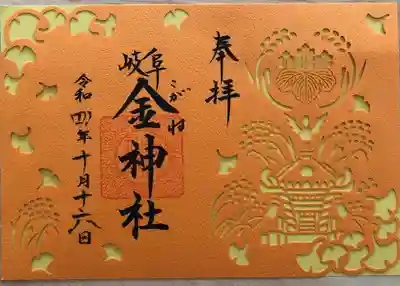 奉拝
岐阜
金神社
こがね
令和四年十月十六日